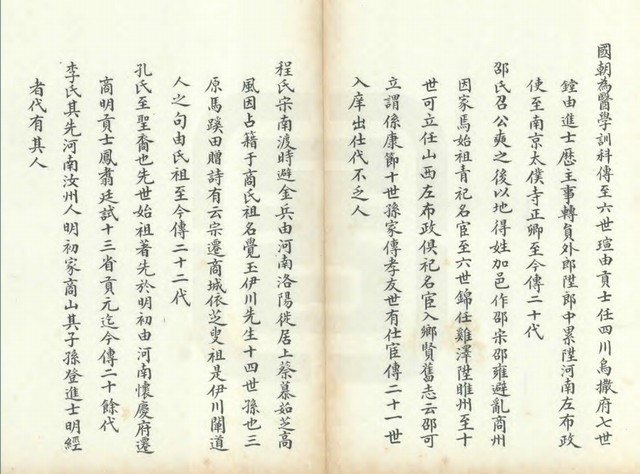 國朝為醫學訓科傳至六世瑄由貢士任四川烏撒府七世
鏜由進士歷主事轉員外郎陞郎中累陞河南左布政
使至南京太僕寺正卿至今傳二十代
邵氏召公奭之後以地得姓加邑作邵宋邵雍避亂商州
因家焉始祖青祀名宦至六世錦任雞澤陞睢州至十
世可立任山西左布政俱祀名宦入鄉賢舊志云邵可
立謂係康節十世孫家傳孝友世有仕宦傳二十一世
入庠出仕代不乏人
程氏宋南渡時避金兵由河南洛陽徙居上蔡慕茹芝高
風因占籍于商氏祖名覺玉伊川先生十四世孫也三
原馬蹊田贈詩有云宗遷商城依芝叟祖是伊川闡道
人之句由氏祖至今傳二十二代
孔氏至聖裔也先世始祖著先於明初由河南懷慶府遷
商明貢士鳳翥廷試十三省貢元迄今傳二十餘代
李氏其先河南汝州人明初家商山其子孫登進士明經
者代有其人